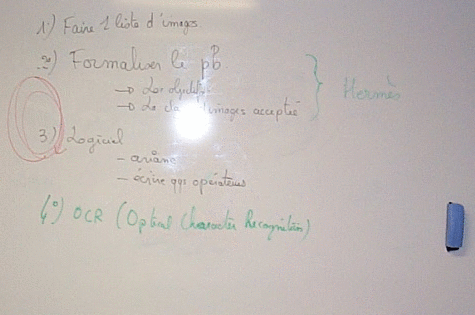 1°) Faire 1 liste d'images.
2°) Formaliser le pb
→ Les objectifs
→ La d'images acceptée
Hermès
3) Logiciel
- ariane
- écrire qqs opérateurs
4°) OCR (Optical Character Recognition)